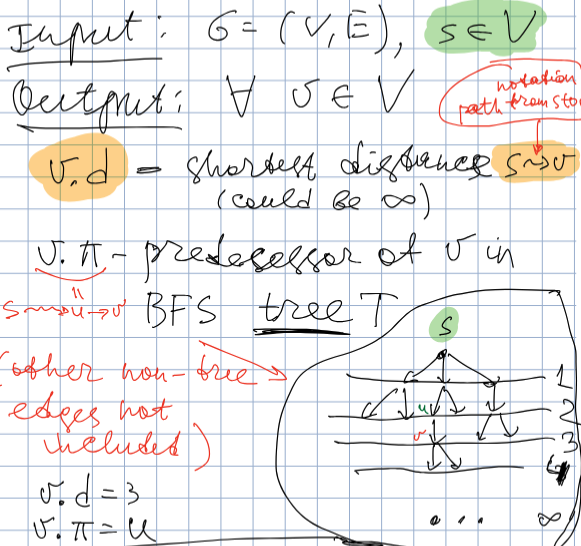 Input: G = (V, E), s ∈ V
Output: ∀ v ∈ V
notation
path from s to
v.d - shortest distance s⇝v
(could be ∞)
v.π - predecessor of v in
s⇝u→v BFS tree T
(other non-tree
edges not
included)
v.d = 3
v.π = u
s
1
u 2
v 3
4
... ∞